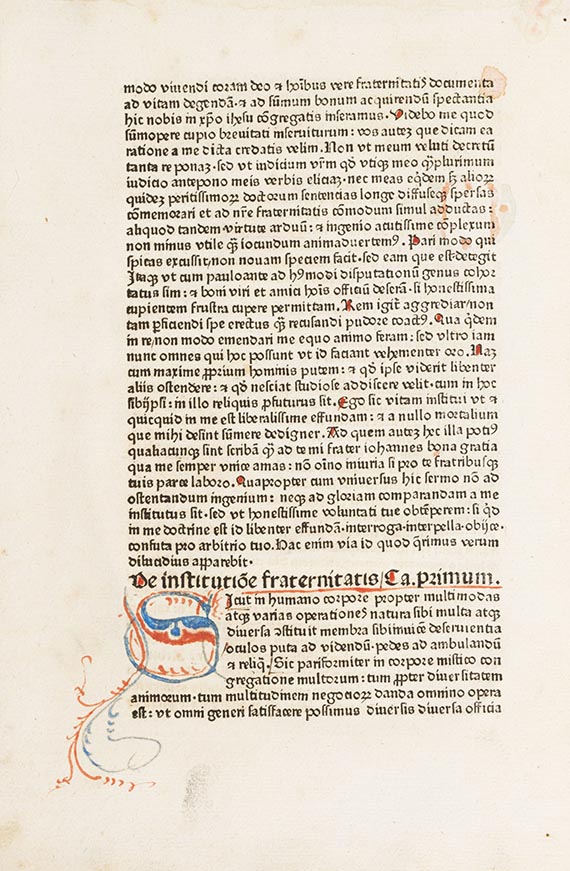 modo viuendi coram deo ⁊ hoı̄bus vere fraternitatis documenta
ad vitam degendā· ⁊ ad sūmum bonum acquirendū spectantia
hic nobis in xp̄o ihesu cōgregatis inseramus. Videbo me quod
sūmopere cupio breuitati inseruiturum: vos auteꝫ que dicam ea
ratione a me dicta credatis velim. Non vt meum veluti decretū
tanta reponaꝫ· sed vt iudicium vr̄m qd̄ vtiqꝫ meo q̄ꝫplurimum
iudicio antepono meis verbis eliciaꝫ· nec meas eq̄dem sꝫ alioꝝ
quideꝫ peritissimoꝝ doctorum sentencias longe diffuseqꝫ spersas
cōmemorari et ad nr̄e fraternitatis cōmodum simul adductas:
aliquod tandem virtute arduū: ⁊ ingenio acutissime cōplexum
non minus vtile q̄ꝫ iocundum animaduertemꝰ. Pari modo qui
spicas excussit/non nouam speciem facit· sed eam que est· detegit
Itaqꝫ vt cum pauloante ad hꝰmodi disputationū genus cohor
tatus sim: ⁊ boni viri et amici hoı̄s officiū deserā· si honestissima
cupientem frustra cupere permittam. Rem igit̄ aggrediar/non
tam ꝑficiendi spe erectus q̄ꝫ recusandi pudore coactꝰ. Qua q̄dem
in re/non modo emendari me equo animo feram: sed vltro iam
nunc omnes qui hoc possunt vt id faciant vehementer oro. Naꝫ
cum maxime ꝓprium hominis putem: ⁊ qd̄ ipse viderit libenter
aliis ostendere: ⁊ qd̄ nesciat studiose addiscere velit· cum in hoc
sibijpsi: in illo reliquis ꝓfuturus sit. Ego sic vitam institui vt ⁊
quicquid in me est liberalissime effundam: ⁊ a nullo mortalium
que mihi desint sūmere dedigner. Ad quem auteꝫ hec illa potiꝰ
qualiacunqꝫ sint scribā q̄ꝫ ad te mi frater iohannes bona gratia
qua me semper vnice amas: non oı̄no iniuria si pro te fratribusqꝫ
tuis parce laboro. Quapropter cum vniuersus hic sermo nō ad
ostentandum ingenium: neqꝫ ad gloriam comparandam a me
institutus sit· sed vt honestissime voluntati tue obtēperem: si qd̄
in me doctrine est id libenter effundā· interroga· interpella· obijce·
confuta pro arbitrio tuo. Hac enim via id quod q̄rimus verum
dilucidius apparebit·
De institutiōe fraternitatis/Ca. primum.
Sicut in humano corpore propter multimodas
atqꝫ varias operationes natura sibi multa atqꝫ
diuersa ꝯstituit membra sibiinuicē deseruientia
/oculos puta ad videndū· pedes ad ambulandū
⁊ reliq̄. Sic pariformiter in corpore mistico con
gregatione multorum: tum ꝓpter diuersitatem
animorum· tum multitudinem negocioꝝ danda omnino opera
est: vt omni generi satisfacere possimus diuersis diuersa officia